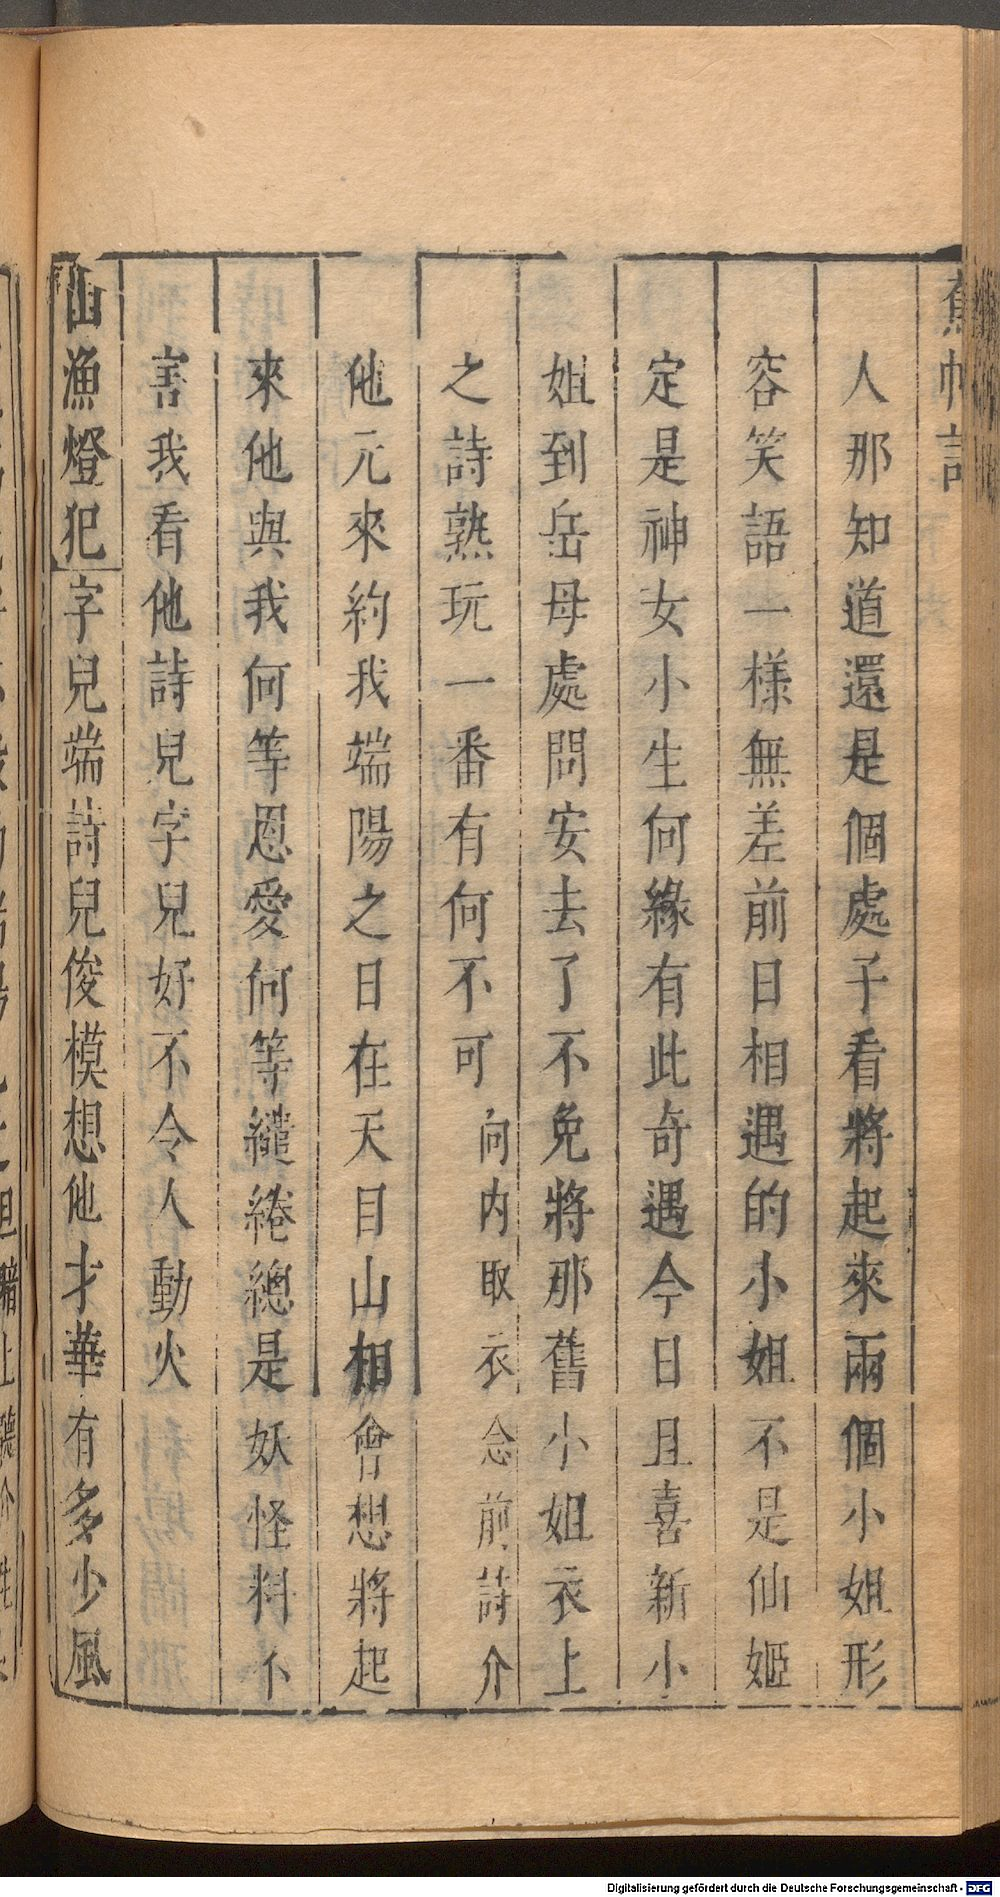 蕉帕記
人那知道還是個處子看將起來兩個小姐形
容笑語一樣無差前日相遇的小姐不是仙姬
定是神女小生何緣有此奇遇今日且喜新小
姐到岳母處問安去了不免將那舊小姐衣上
之詩熟玩一番有何不可向内取衣念前詩介
他元來約我端陽之日在天目山相會想將起
來他與我何等恩愛何等繾綣總是妖怪料不
害我看他詩兒字兒好不令人動火
山漁燈犯字兒端詩兒俊模想他才華有多少風
Digitalisierung gefördert durch die Deutsche Forschungsgemeinschaft - DFG